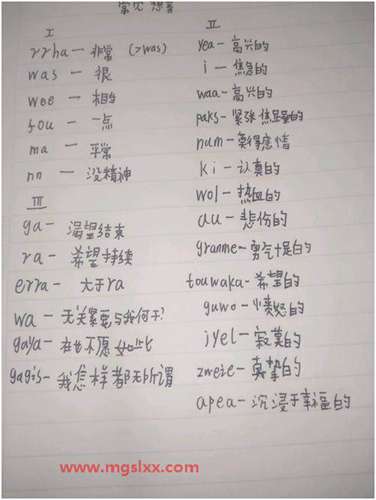 常见
I
rrha — 非常 (>was)
was — 很
wee — 相当
fou — 一点
ma — 平常
nn — 没精神
III
ga — 渴望结束
ra — 希望持续
erra — 大于ra
wa — 无关紧要与我何干?
gaya — 不愿如此
gagis — 我怎样都无所谓
II
yea - 高兴的
i - 焦急的
waa - 高兴的
paks - 紧张焦虑的
num - 莫得感情
ki - 认真的
wol - 热血的
au - 悲伤的
granme - 勇气十足的
touwaka - 希望的
guwo - 愤怒的
iyel - 寂寞的
zweie - 真挚的
apea - 沉浸于幸福的
www.mgslxx.com